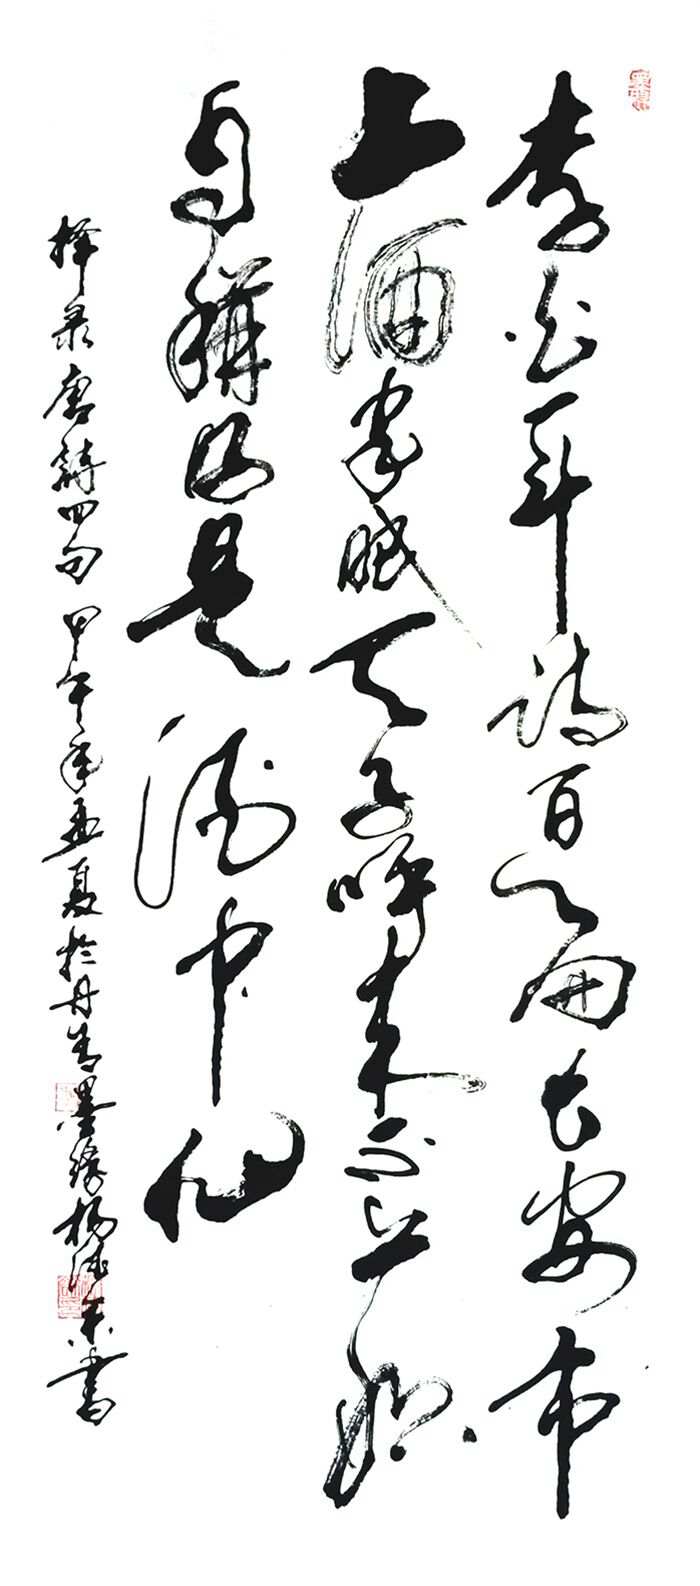 李白一斗诗百篇长安市
上酒家眠天子呼来不上船
自稱臣是酒中仙
择录唐詩四句甲午年夏於丹青墨缘杨書